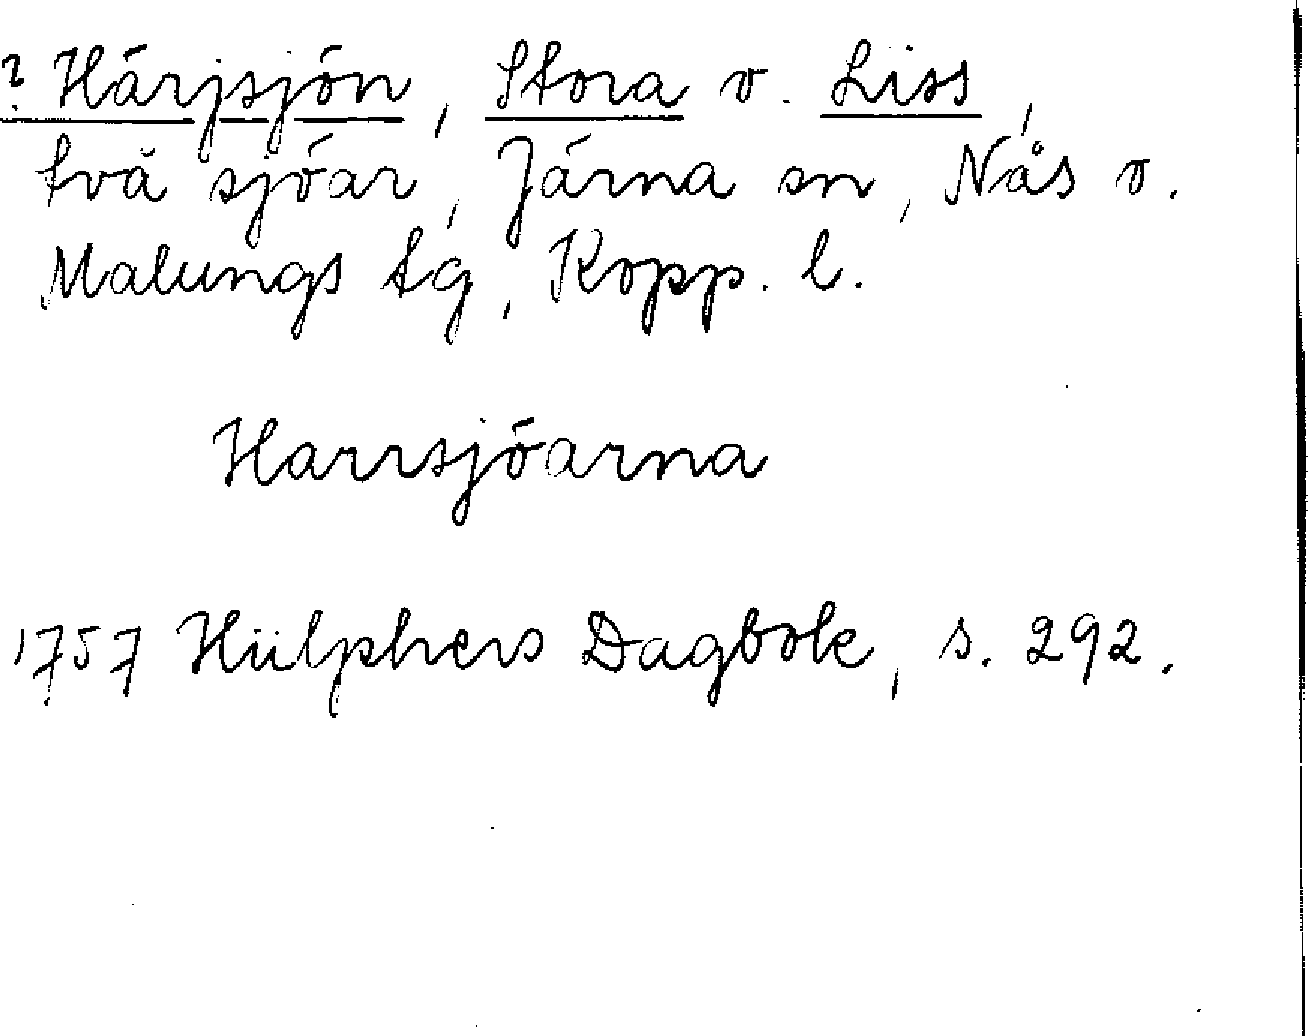 ? Härjsjön, Stora o. Liss,
två sjöar, Järna sn, Nås o.
Malungs tg, Kopp. l.
Harrsjöarna
1757 Hülphers Dagbok, s. 292.